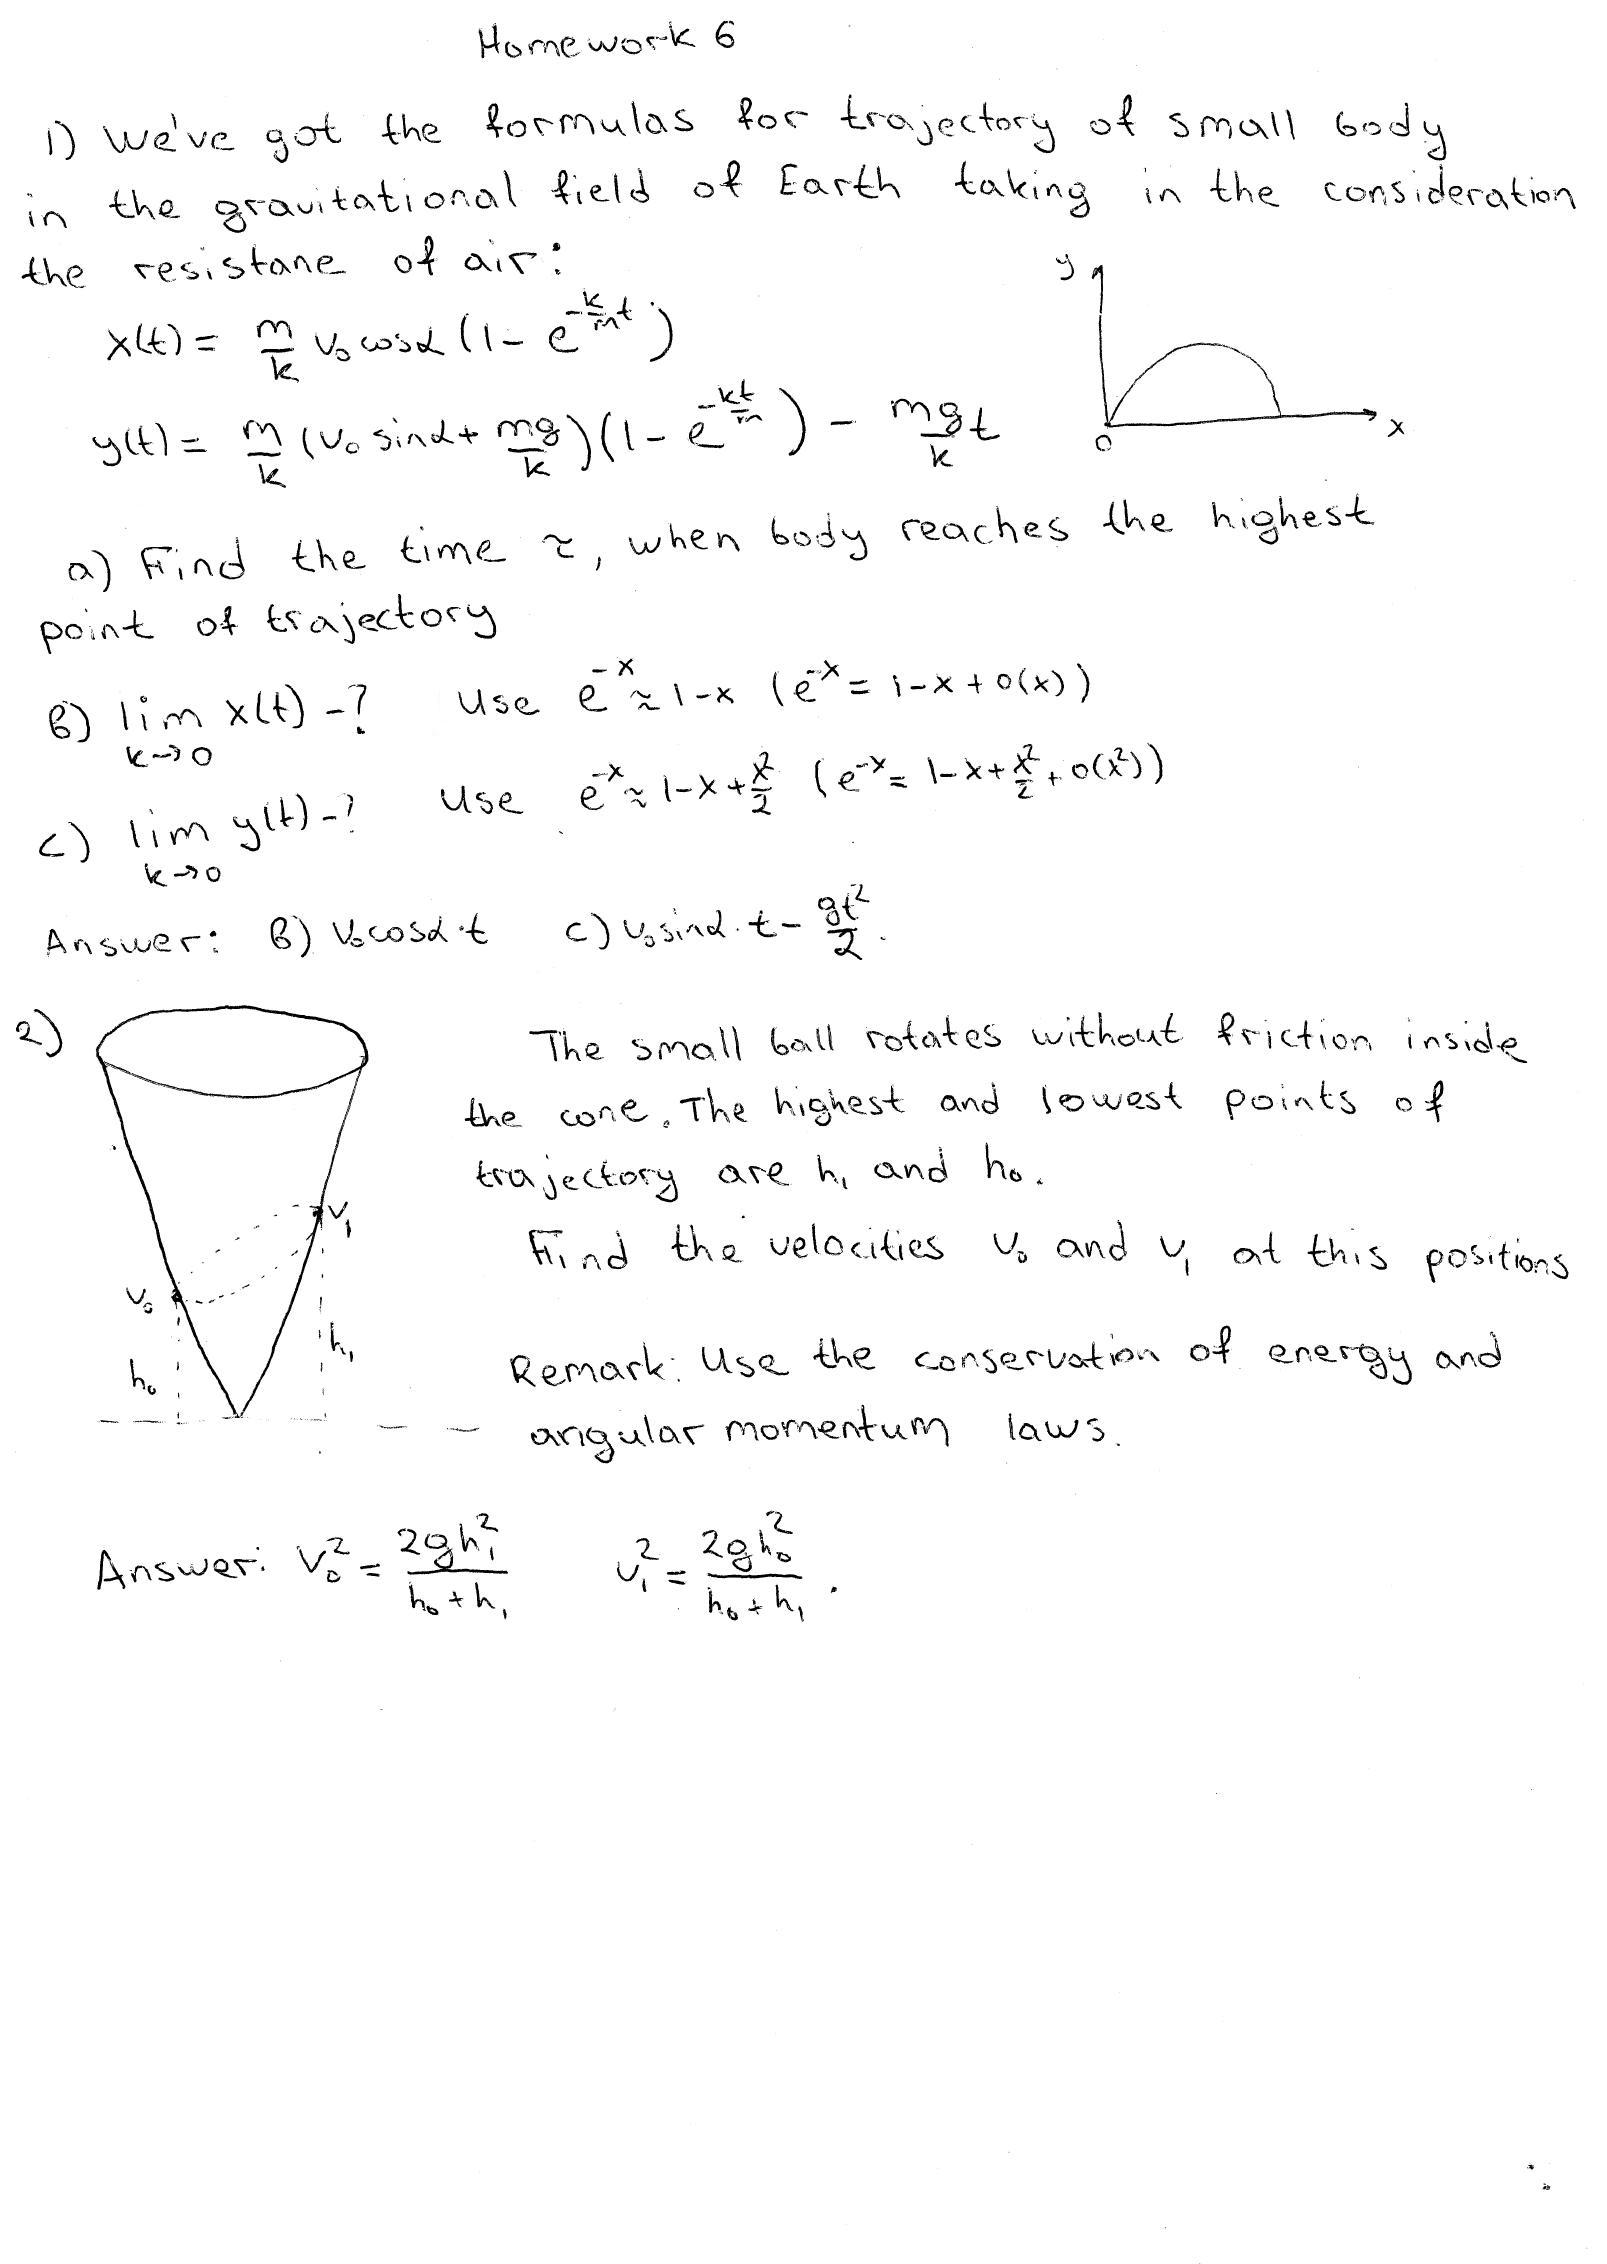 Homework 6
1) We've got the formulas for trajectory of small body
in the gravitational field of Earth taking in the consideration
the resistane of air:
x(t) = m/k v₀ cosα (1 - e^(-k/m t))
y(t) = m/k (v₀ sinα + mg/k)(1 - e^(-kt/m)) - mg/k t
y
x
0
a) Find the time τ, when body reaches the highest
point of trajectory
b) lim x(t) -? Use e^(-x) ≈ 1-x (e^(-x) = 1-x+o(x))
k→0
c) lim y(t) -? Use e^(-x) ≈ 1-x+x²/2 (e^(-x) = 1-x+x²/2+o(x²))
k→0
Answer: b) v₀cosα·t c) v₀sinα·t - gt²/2.
2) The small ball rotates without friction inside
the cone. The highest and lowest points of
trajectory are h₁ and h₀.
Find the velocities v₀ and v₁ at this positions
Remark: Use the conservation of energy and
angular momentum laws.
v₁
v₀
h₁
h₀
Answer: v₀² = 2gh₁²/(h₀+h₁) v₁² = 2gh₀²/(h₀+h₁).